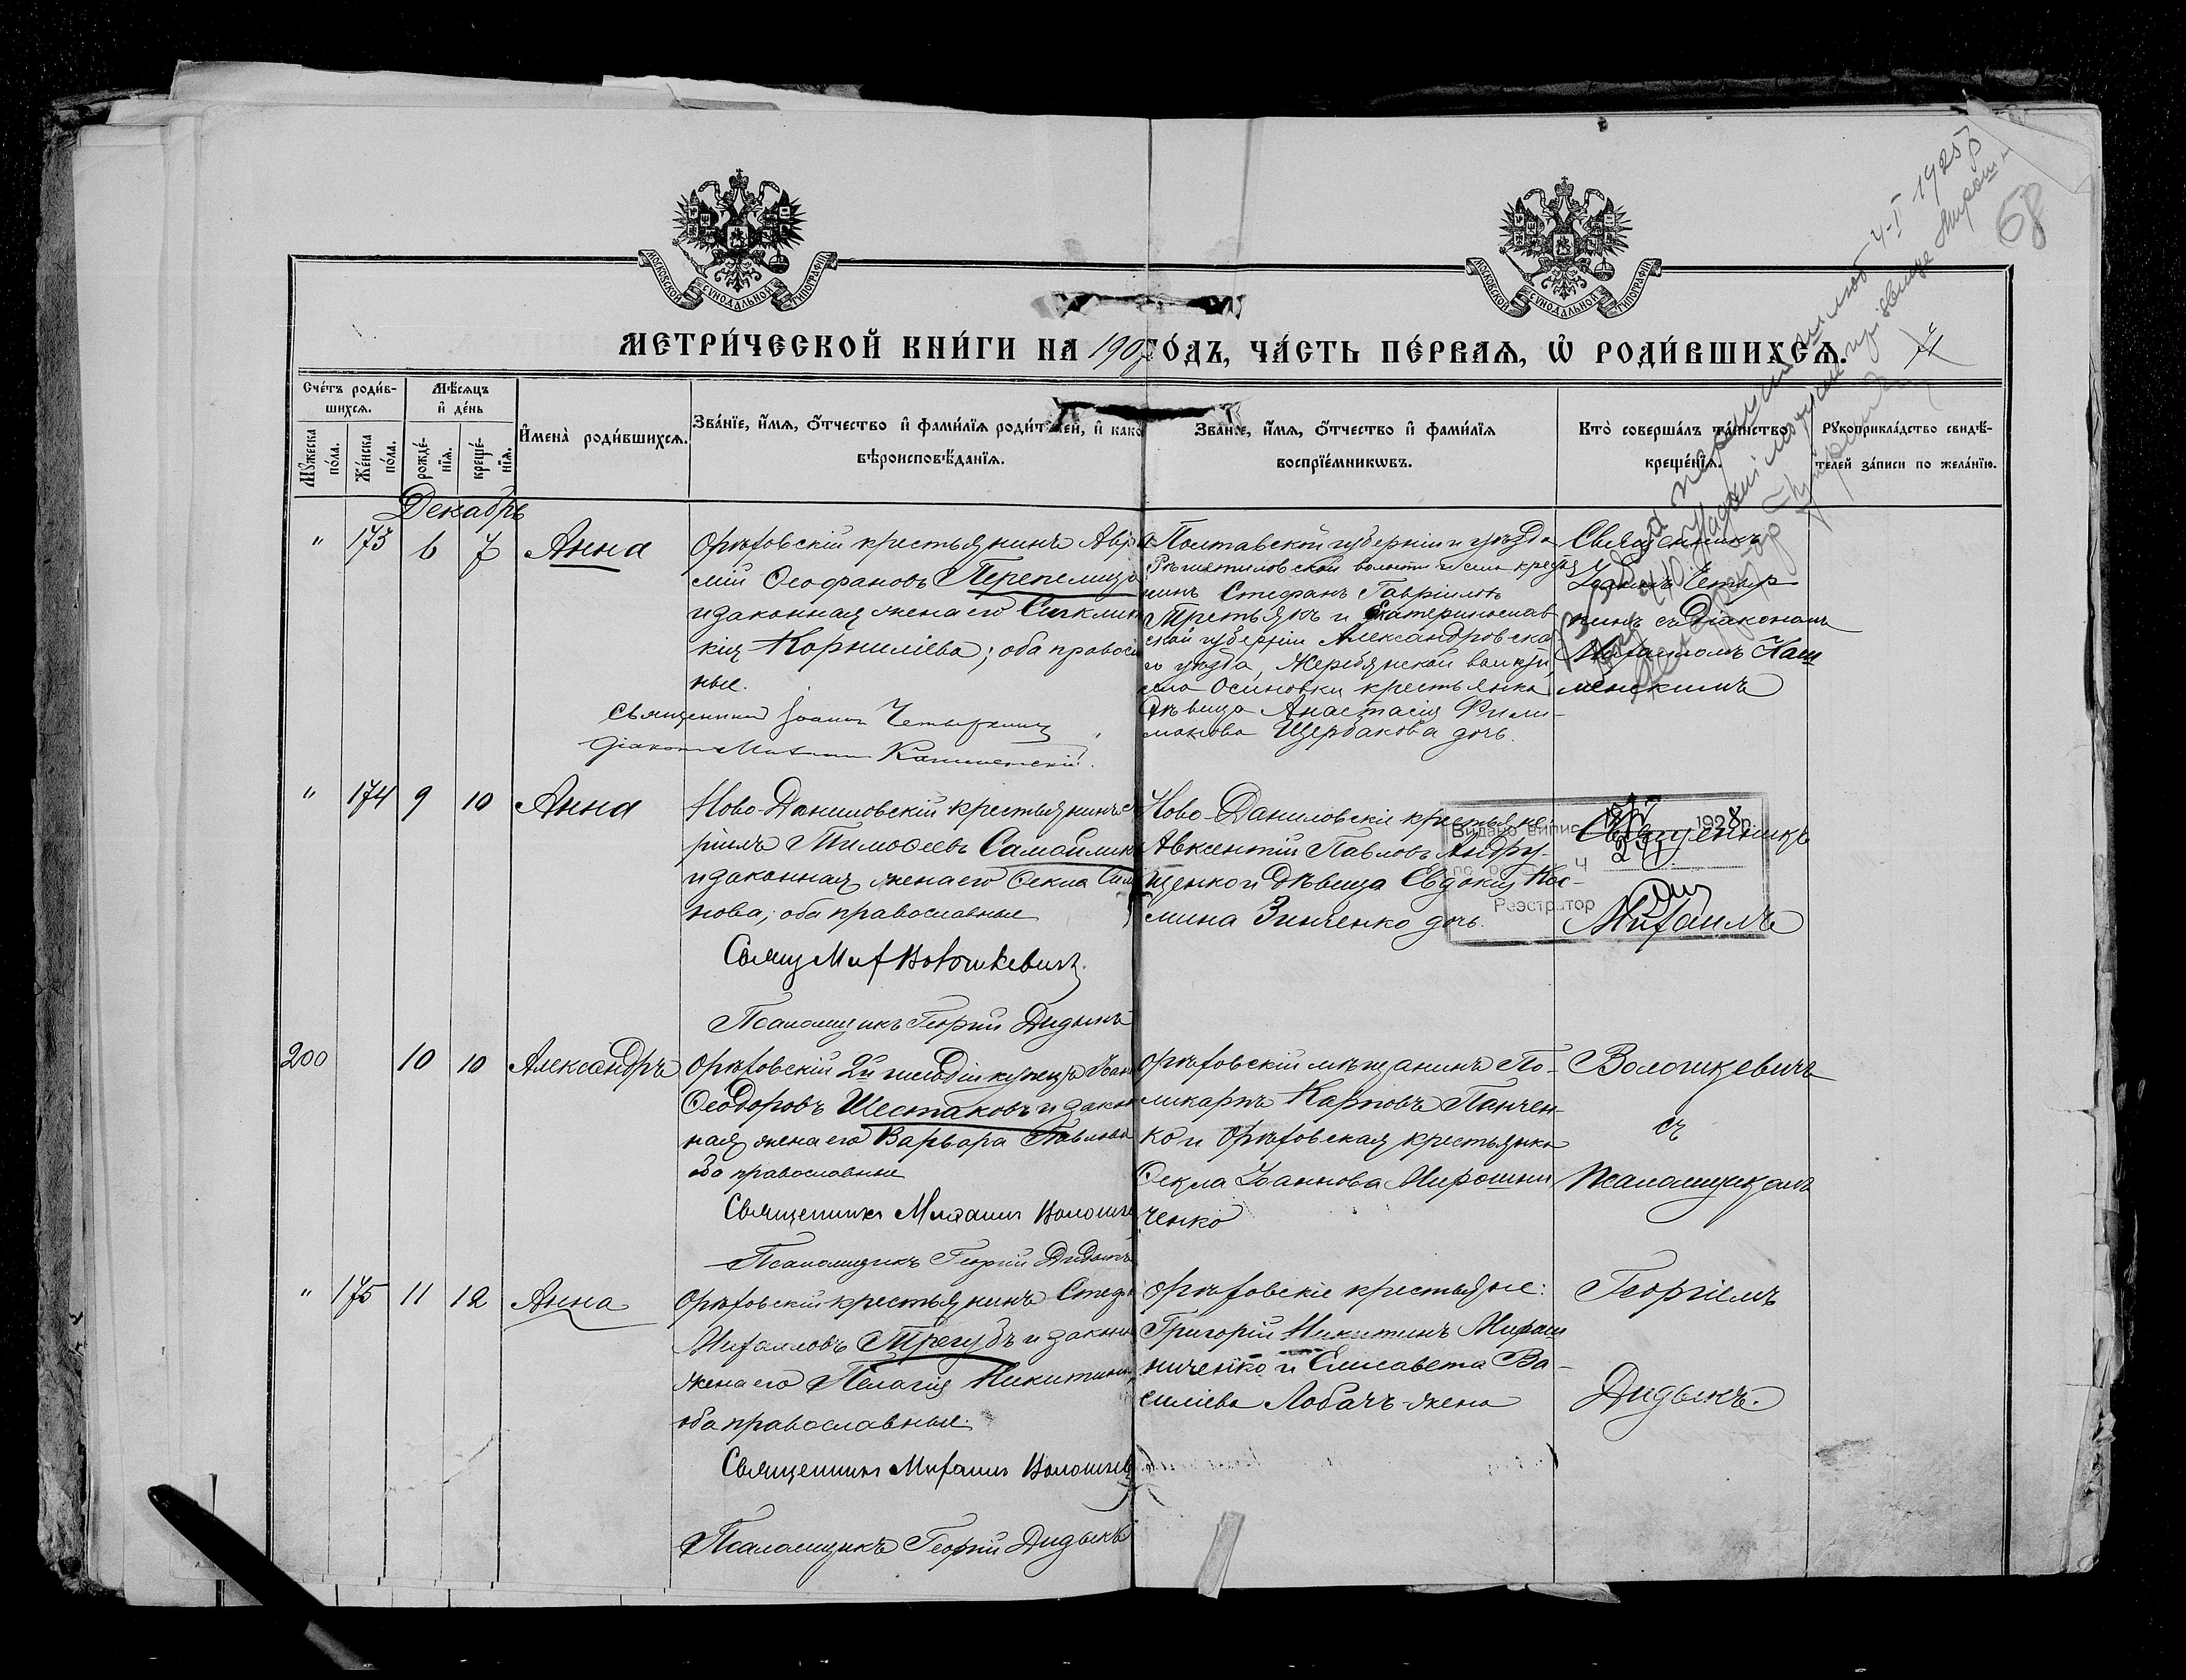 68
МОСКОВСКОЙ СУНОДАЛЬНОЙ ТИПОГРАФІИ
МОСКОВСКОЙ СУНОДАЛЬНОЙ ТИПОГРАФІИ
МЕТРИ́ЧЕСКОЙ КНИ́ГИ НА 190 ГО́ДЪ, ЧА́СТЬ ПЕ́РВАЯ, Ѡ РОДИ́ВШИХСЯ.
Сче́тъ роди́в-
шихся.
Мꙋжеска по́ла.
Же́нска по́ла.
Мѣ́сяцъ и де́нь
рожде́-нїя.
креще́-нїя.
Имена̀ роди́вшихся.
Зва́нїе, и́мя, о́тчество и фами́лїя роди́телей, и како
вѣроисповѣ́данїя.
Зва́нїе, и́мя, о́тчество и фами́лїя
воспрїе́мникѡвъ.
Кто̀ соверша́лъ та́инство
креще́нїя.
Рꙋкоприкла́дство свидѣ́-
телей за́писи по жела́нїю.
Декабрь
" 173 6 7 Анна
Орѣховскій крестьянинъ Авра
мій Ѳеофановъ Перепелица
и законная жена его
кія Корнилiева; оба правосл
ные.
Священникъ Іоаннъ Четыркинъ
Діаконъ Михаилъ Каминскій.
Полтавской губерніи и уѣзда
Рѣшетиловской волости и села крестья
нинъ Стефанъ Гавріиловъ
Третьякъ и Екатеринослав
ской губерніи Александровска
го уѣзда, Жеребянской вол
села Осиповки крестьянка
дѣвица Анастасія Фили-
монова Щербакова дочь.
Священникъ
Іоаннъ Четыр
кинъ съ Діакономъ
Михаиломъ
менскимъ
" 174 9 10 Анна
Ново-Даниловскій крестьянинъ
ріилъ Тимоѳеевъ Самойлик
и законная жена его Ѳекла
нова; оба православные
Свящ Мих Волошкевичъ.
Псаломщикъ Георгій Дидыкъ
Ново-Даниловскіе крестьяне:
Авксентій Павловъ Андру-
щенко и дѣвица Евдокія Кос-
мина Зинченко дочь.
Священникъ
Михаилъ
Видано випис 1928р.
Реэстратор
200 10 10 Александръ
Орѣховскій 2й гильдіи купецъ Іоан
Ѳеодоровъ Шестаковъ и закон
ная жена его Варвара Павлова
оба православные
Священникъ Михаилъ Волошке
Псаломщикъ Георгій Дидыкъ
Орѣховскій мѣщанинъ По-
ликарпъ Карповъ Панчен-
ко и Орѣховская крестьянка
Ѳекла Іоаннова Мирошни
ченко
Волошкевичъ
съ
Псаломщикомъ
" 175 11 12 Анна
Орѣховскій крестьянинъ Стеф
Михаиловъ Трегубъ и законн
жена его Пелагія Никитина
оба православные.
Священникъ Михаилъ Волошкев
Псаломщикъ Георгій Дидыкъ
Орѣховскіе крестьяне:
Григорій Никитинъ Мирош
ниченко и Елисавета Ва-
силіева Лобачъ-жена
Георгіемъ
Дидыкъ.